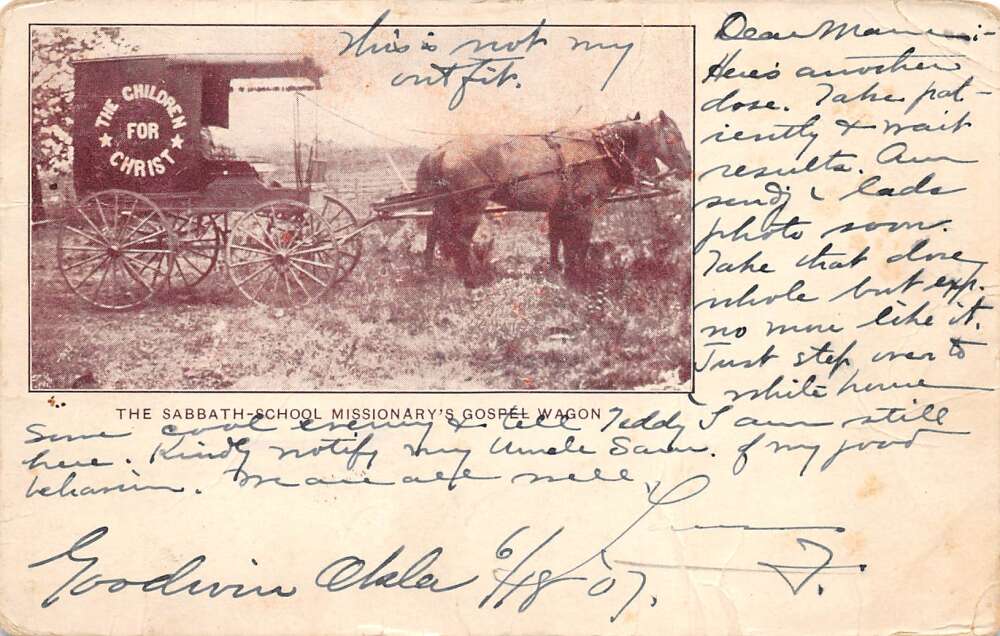 This is not my
outfit.
THE CHILDREN
FOR
CHRIST
THE SABBATH-SCHOOL MISSIONARY'S GOSPEL WAGON
Dear Mam :-
Here's another
dose. Take pat-
iently & wait
results. Am
sendg lads
photo soon.
Take that dose
whole but exp.
no more like it.
Just step over to
white house
some cool evening & tell Teddy I am still
here. Kindly notify my Uncle Sam. of my good
behavior. We are all well
F.
Goodwin Okla 6/18-07.